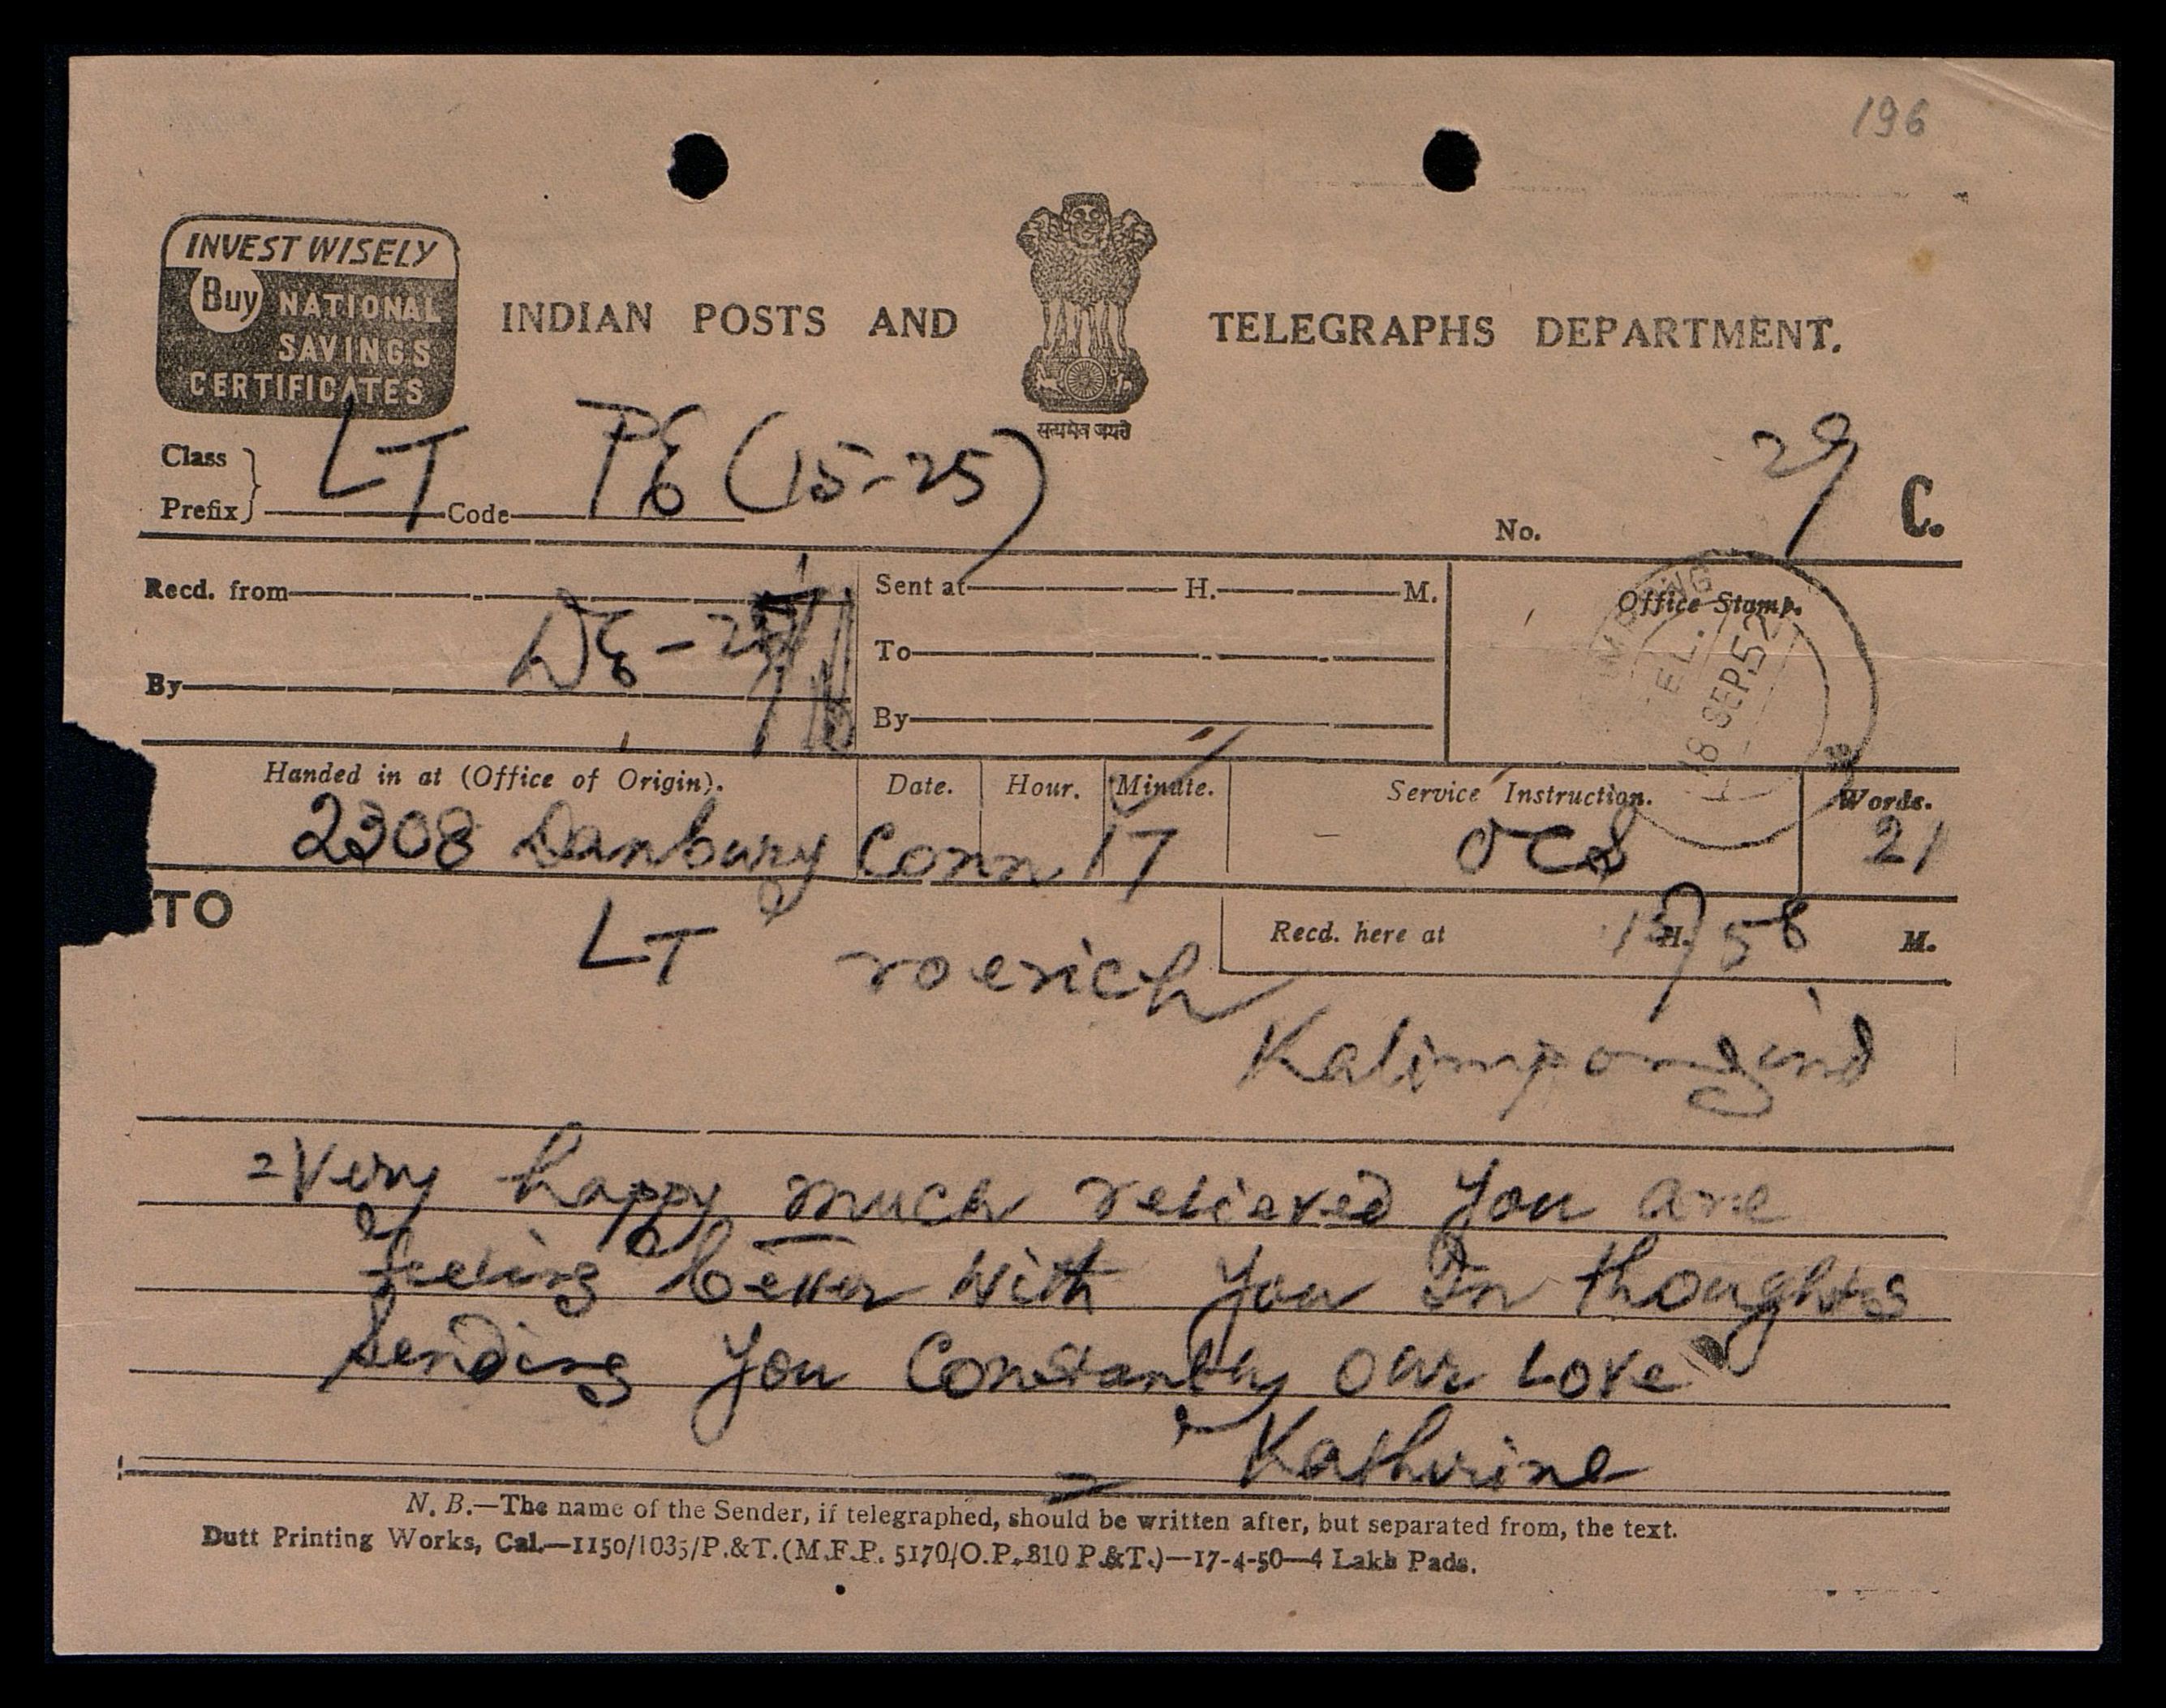 196
INVEST WISELY
Buy NATIONAL
SAVINGS
CERTIFICATES
INDIAN POSTS AND TELEGRAPHS DEPARTMENT.
सत्यमेव जयते
Class
Prefix LT Code PE (15-25)
No. 29 C.
Recd. from
DE-
By
Sent at H. M.
To
By
Office Stamp.
18 SEP 52
Handed in at (Office of Origin). Date. Hour. Minute. Service Instruction. Words.
2308 Danbury Conn 17 21
TO
LT roerich
Recd. here at H. 58 M.
Kalimpong ind
=Very happy much relieved you are
feeling better with you In thoughts
Sending you Constantly our Love
= Kathrine
N. B.—The name of the Sender, if telegraphed, should be written after, but separated from, the text.
Dutt Printing Works, Cal.—1150/1035/P.&T.(M.F.P. 5170/O.P. 810 P.&T.)—17-4-50—4 Lakh Pads.